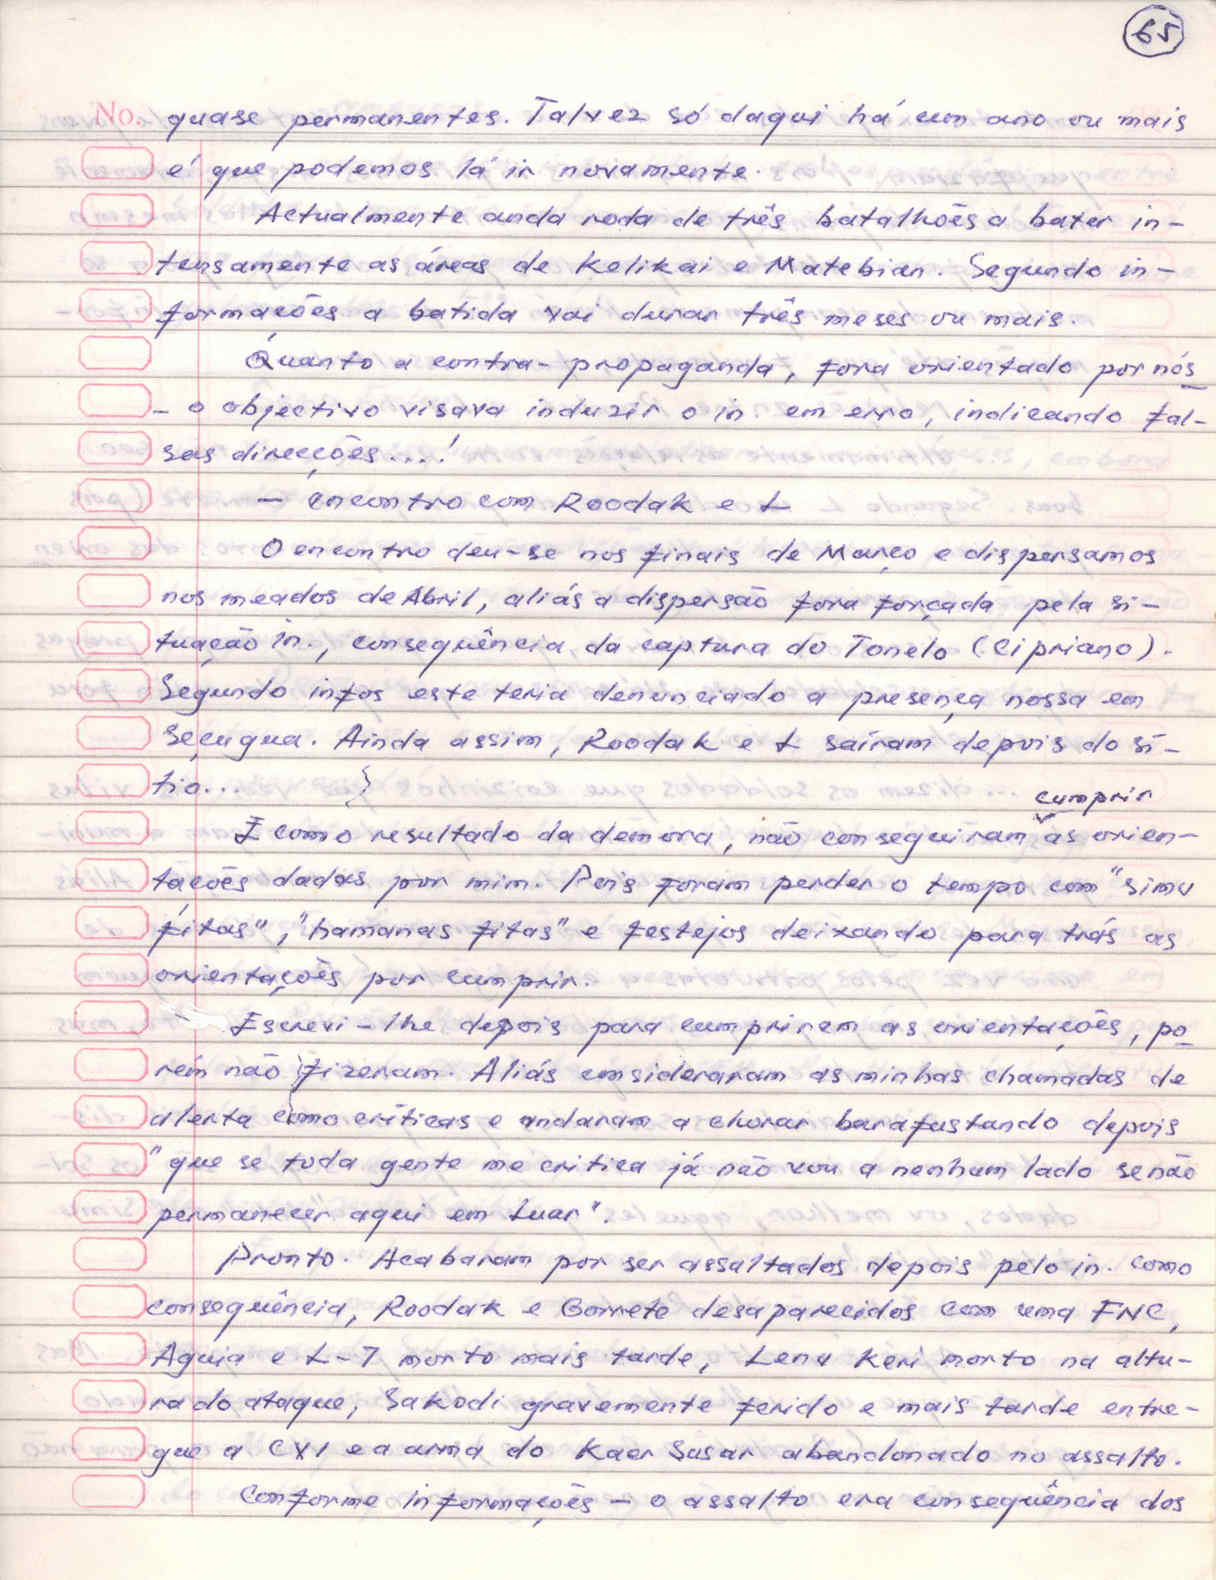 65
No. quase permanentes. Talvez só daqui há um ano ou mais
é que podemos lá ir novamente.
Actualmente anda roda de três batalhões a bater in-
tensamente as áreas de Kelikai e Matebian. Segundo in-
formações a batida vai durar três meses ou mais.
Quanto a contra-propaganda, fora orientado por nós
- o objectivo visava induzir o in. em erro, indicando fal-
sas direcções....!
- Encontro com Roodak e L
O encontro deu-se nos finais de Março e dispersamos
nos meados de Abril, aliás a dispersão fora forçada pela si-
tuação in., consequência da captura do Tonelo (Cipriano).
Segundo infos este teria denunciado a presença nossa em
Seçugua. Ainda assim, Roodak e L saíram depois do sí-
tio...
cumprir
E como resultado da demora, não conseguiram as orien-
tações dadas por mim. Pois foram perder o tempo com "simu
fitas", "hamanas fitas" e festejos deixando para trás as
orientações por cumprir.
Escrevi-lhe depois para cumprirem as orientações, po
rém não fizeram. Aliás consideraram as minhas chamadas de
alerta como críticas e andaram a chorar barafustando depois
"que se toda gente me critica já não vou a nenhum lado senão
permanecer aqui em Luar".
Pronto. Acabaram por ser assaltados depois pelo in. Como
consequência, Roodak e Gorrete desaparecidos com uma FNC,
Aguia e L-7 morto mais tarde, Lenu Keri morto na altu-
ra do ataque, Sakodi gravemente ferido e mais tarde entre-
gue a CVI e a arma do Kaer Susar abandonado no assalto.
Conforme informações - o assalto era consequência dos